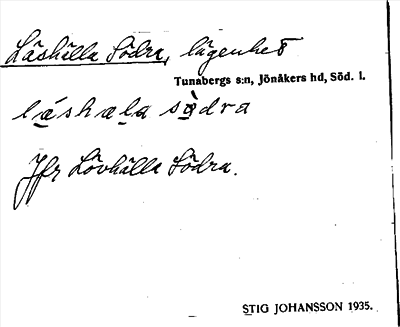 Låshälla Södra, lägenhet
Tunabergs s:n, Jönåkers hd, Söd. l.
Jfr Lövhälla Södra.
STIG JOHANSSON 1935.